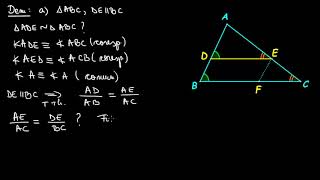 Dem: a) ΔABC, DE∥BC
ΔADE ~ ΔABC ?
∢ADE ≡ ∢ABC (coresp)
∢AED ≡ ∢ACB (coresp)
∢A ≡ ∢A (comun)
DE∥BC ⟹ T.Th. AD/AB = AE/AC
AE/AC = DE/BC ? Fi
A
D E
B F C